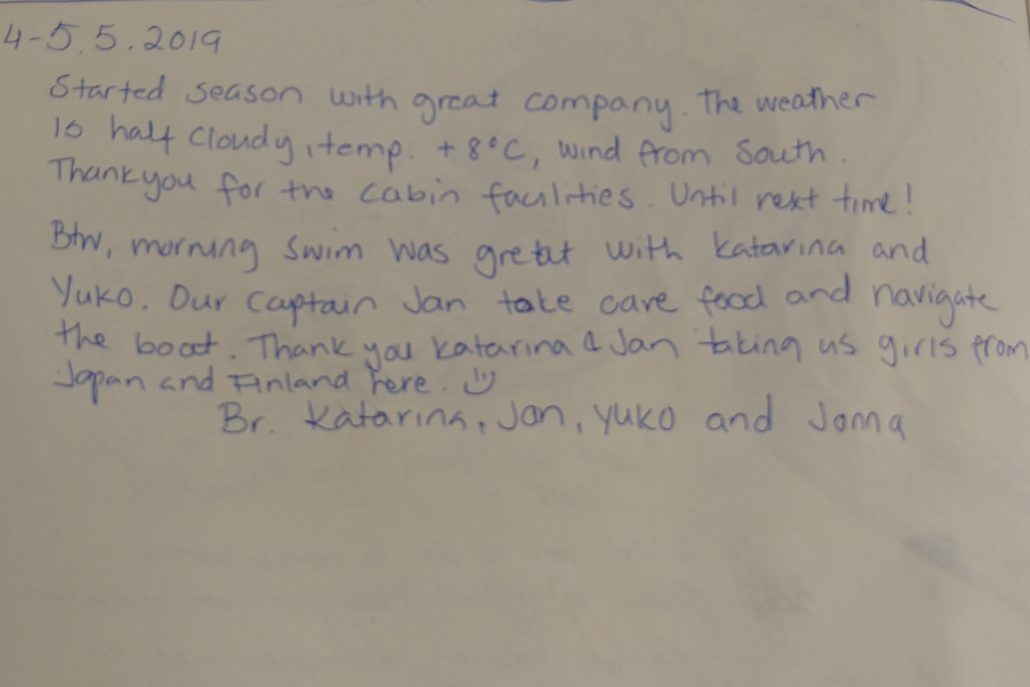 4-5.5.2019
Started season with great company. The weather
is half cloudy, temp. +8°C, wind from South.
Thankyou for the cabin facilities. Until next time!
Btw, morning swim was great with Katarina and
Yuko. Our captain Jan take care food and navigate
the boat. Thank you Katarina & Jan taking us girls from
Japan and Finland here. :)
Br. Katarina, Jan, Yuko and Jonna